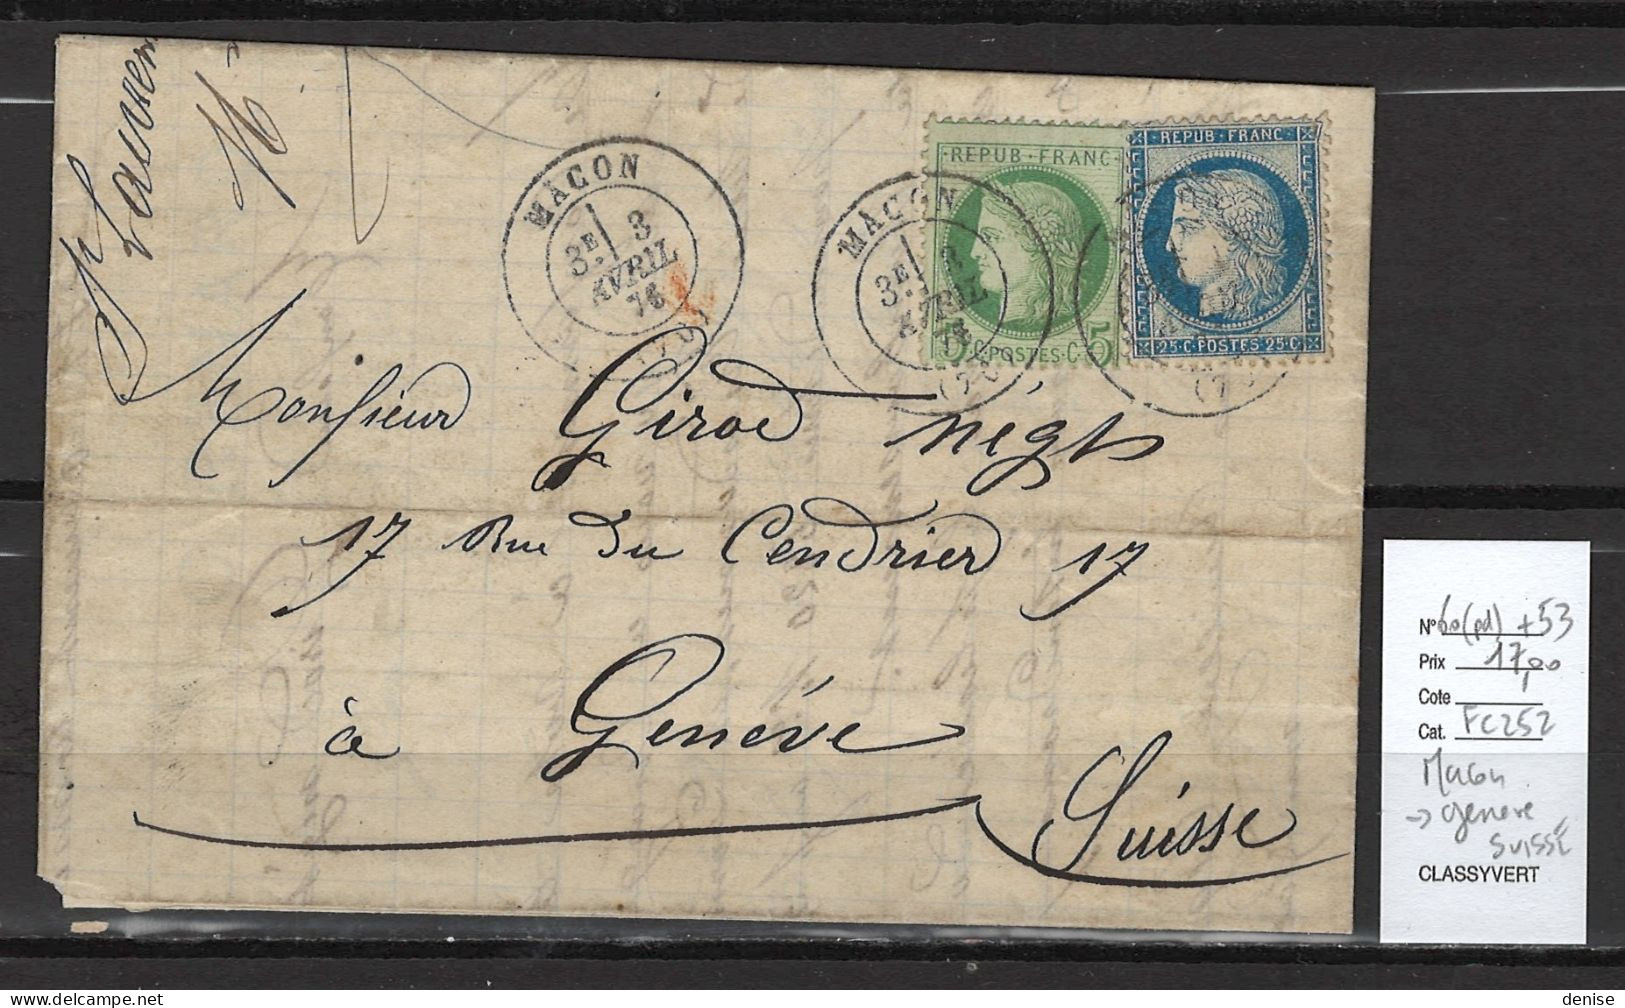 MACON
3E
3
AVRIL
76
MACON
3E
AVRIL
REPUB · FRANC
5 · C · POSTES · C · 5
REPUB · FRANC
25 · C · POSTES 25 · C
Monsieur Girod négts
17 Rue du Cendrier 17
à Genéve
Suisse
N° 60(pd) +53
Prix 17,00
Cote
Cat. FC252
Macon
→ Geneve
SUISSE
CLASSYVERT
denise